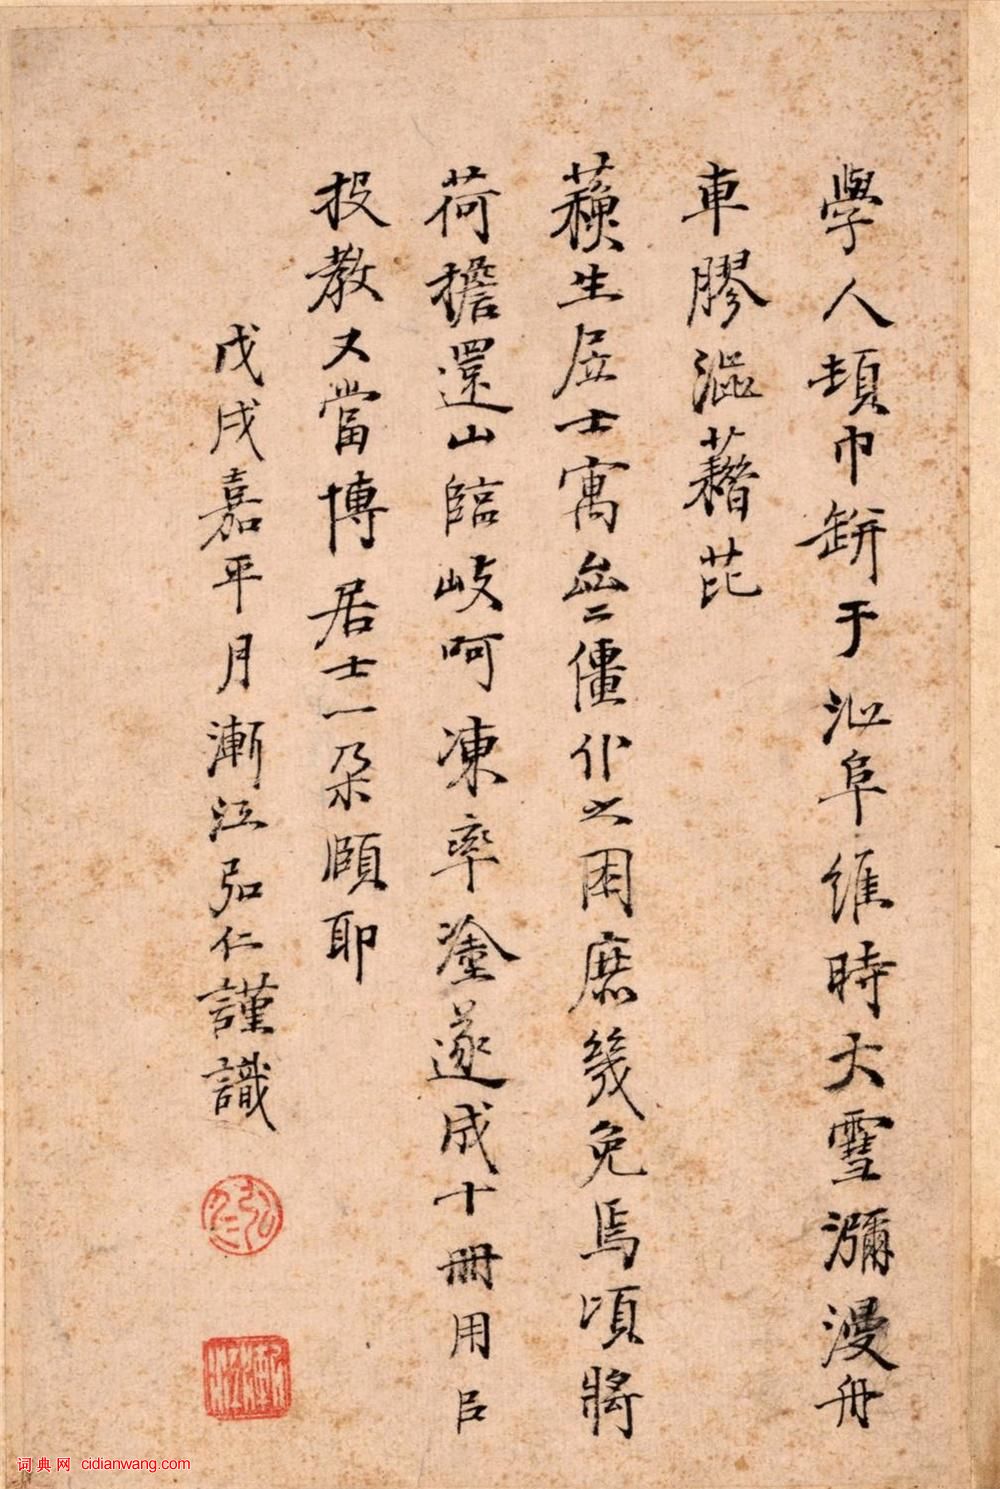 學人頍巾缾于沁阜維時大雪瀰漫舟
車膠澁藉芘
蘓生居士寓㘴二僵仆之困庶幾免焉頃將
荷擔還山臨岐呵凍率塗遂成十冊用㠯
投教又當博居士一朵頤耶
戊戌嘉平月漸江弘仁謹識
弘仁
漸江
词典网 cidianwang.com